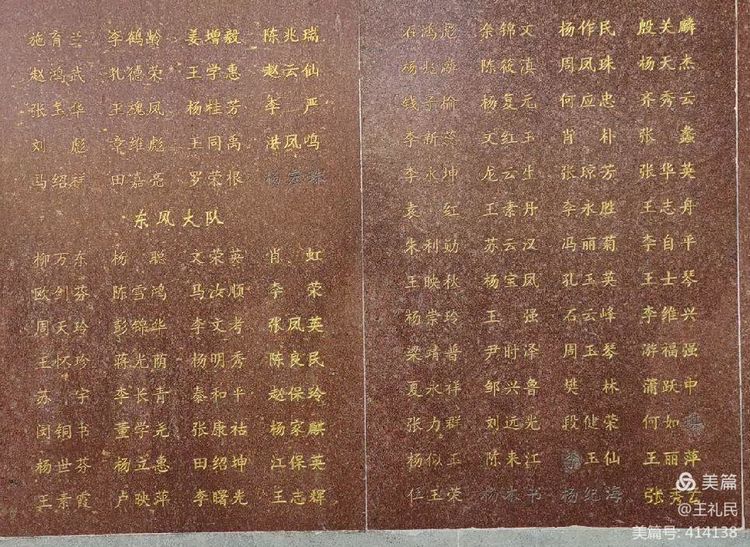 施育兰 李鹤龄 姜增毅 陈兆瑞
赵鸿武 孔德荣 王学惠 赵云仙
张玉华 王魂凤 杨桂芳 李严
刘彪 章维彪 王同禹 洪凤鸣
马绍祥 田嘉亮 罗荣根
东风大队
柳万东 杨聪 文荣英 肖虹
欧剑芬 陈雪鸿 马汝顺 李荣
周天玲 彭锦华 李文考 张凤英
王怀珍 蒋光荫 杨明秀 陈良民
苏宇 李长青 秦和平 赵保玲
闵铜书 董学尧 张康祜 杨家麒
杨世芬 杨立惠 田绍坤 江保英
王素霞 卢映萍 李曙光 王志辉
石鸿彪 余锦文 杨作民 殷关麟
陈筱滇 周凤珠 杨天杰
钱子榆 杨复元 何应忠 齐秀云
李新燕 文红玉 肖朴 张蠡
李永坤 龙云生 张琼芳 张华英
袁红 王素丹 李永胜 王志舟
朱利勋 苏云汉 冯丽菊 李自平
王映秋 杨宝凤 孔玉英 王士琴
杨崇玲 王强 石云峰 李维兴
梁靖普 尹时泽 周玉琴 游福强
夏永祥 邹兴鲁 樊林 蒲跃中
张力群 刘远光 段健荣 何如
杨似玉 陈来江 玉仙 王丽萍
伍玉荣 杨本书 杨纪海 张秀云
美篇
@王礼民
美篇号: 414138